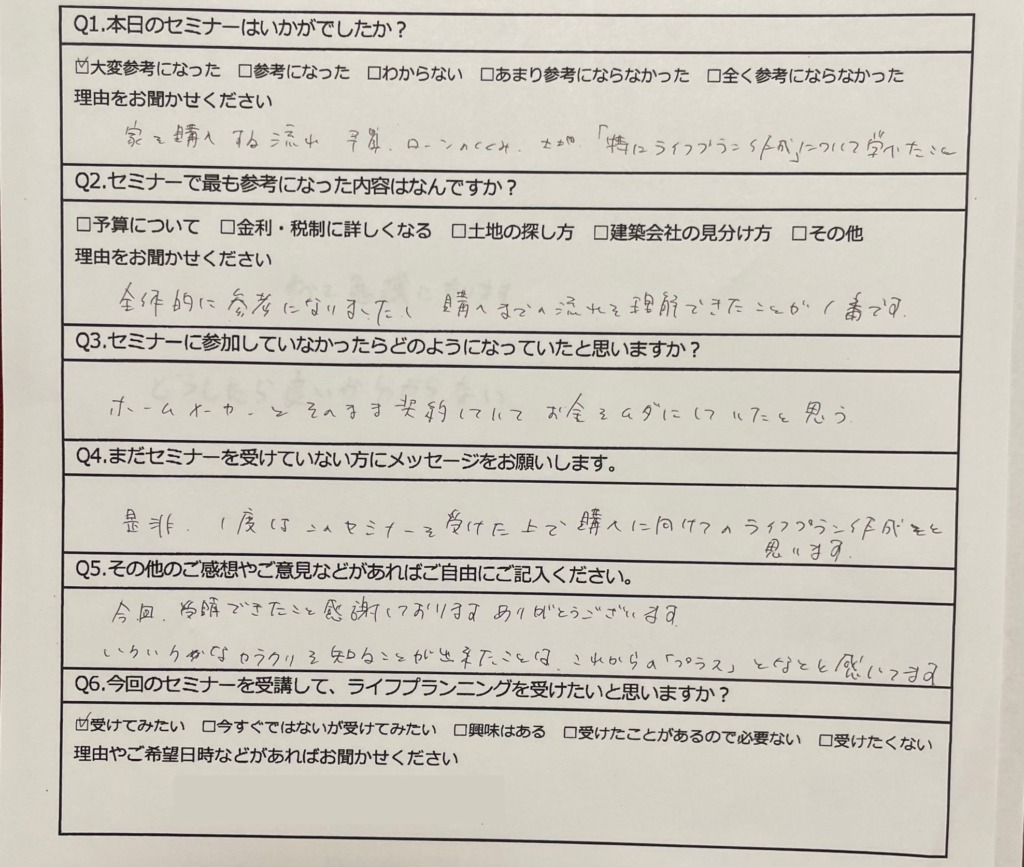 Q1.本日のセミナーはいかがでしたか？
☑大変参考になった □参考になった □わからない □あまり参考にならなかった □全く参考にならなかった
理由をお聞かせください
家を購入する流れ 予算、ローンのしくみ、土地 「特にライフプラン作成」について学べたこと
Q2.セミナーで最も参考になった内容はなんですか？
□予算について □金利・税制に詳しくなる □土地の探し方 □建築会社の見分け方 □その他
理由をお聞かせください
全体的に参考になりましたし 購入までの流れを理解できたことが1番です。
Q3.セミナーに参加していなかったらどのようになっていたと思いますか？
ホームメーカーとそのまま契約していて お金をムダにしていたと思う。
Q4.まだセミナーを受けていない方にメッセージをお願いします。
是非、1度はこのセミナーを受けた上で購入に向けてのライフプラン作成をと
思います。
Q5.その他のご感想やご意見などがあればご自由にご記入ください。
今回、受講できたこと感謝しております ありがとうございます
いろいろなカラクリを知ることが出来たことは、これからの「プラス」となると感じてます
Q6.今回のセミナーを受講して、ライフプランニングを受けたいと思いますか？
☑受けてみたい □今すぐではないが受けてみたい □興味はある □受けたことがあるので必要ない □受けたくない
理由やご希望日時などがあればお聞かせください